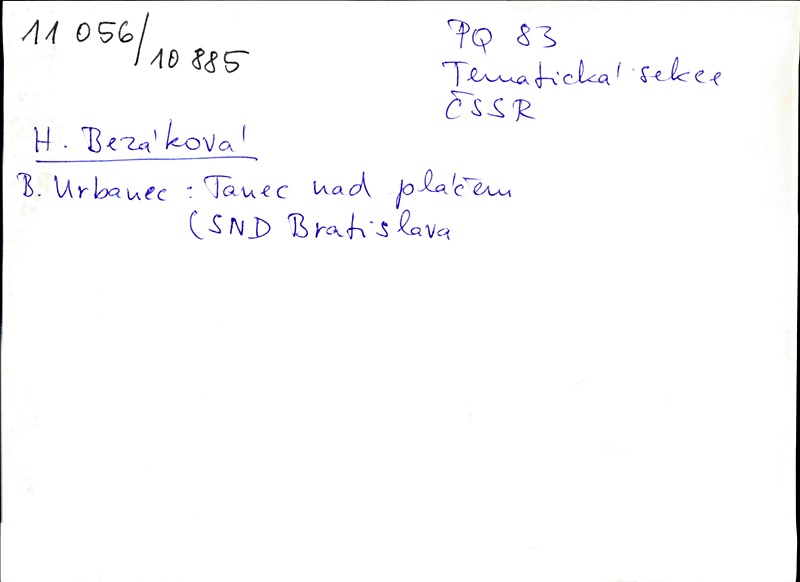 11 056/10 885
PQ 83
Tematická sekce
ČSSR
H. Bezáková
B. Urbanec : Tanec nad pláčem
(SND Bratislava